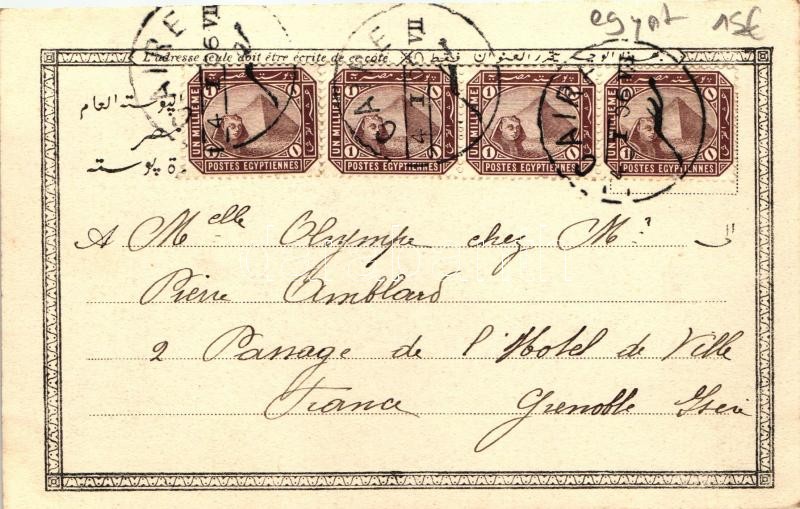 egypt 15€
L'adresse seule doit être écrite de ce côté
CAIRE
CAIRE
CAIRE
UN MILLIEME 1 POSTES EGYPTIENNES
UN MILLIEME 1 POSTES EGYPTIENNES
UN MILLIEME 1 POSTES EGYPTIENNES
UN MILLIEME 1 POSTES EGYPTIENNES
البوستة العام
A Melle Olympe chez Mr
Pierre Amblard
2 Passage de l'Hotel de Ville
France Grenoble Isère